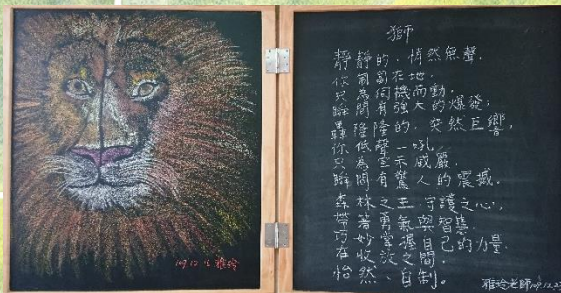 獅
靜靜的，悄然無聲，
你匍匐在地，
只為伺機而動，
瞬間有強大的爆發；
轟隆隆的，突然巨響，
你低聲一吼，
只為宣示威嚴，
瞬間有驚人的震撼。
森林之王，守護之心，
帶著勇氣與智慧，
巧妙掌握自己的力量，
在收放之間，
怡然、自制。
雅玲老師109.12.23
109.12.16 雅玲